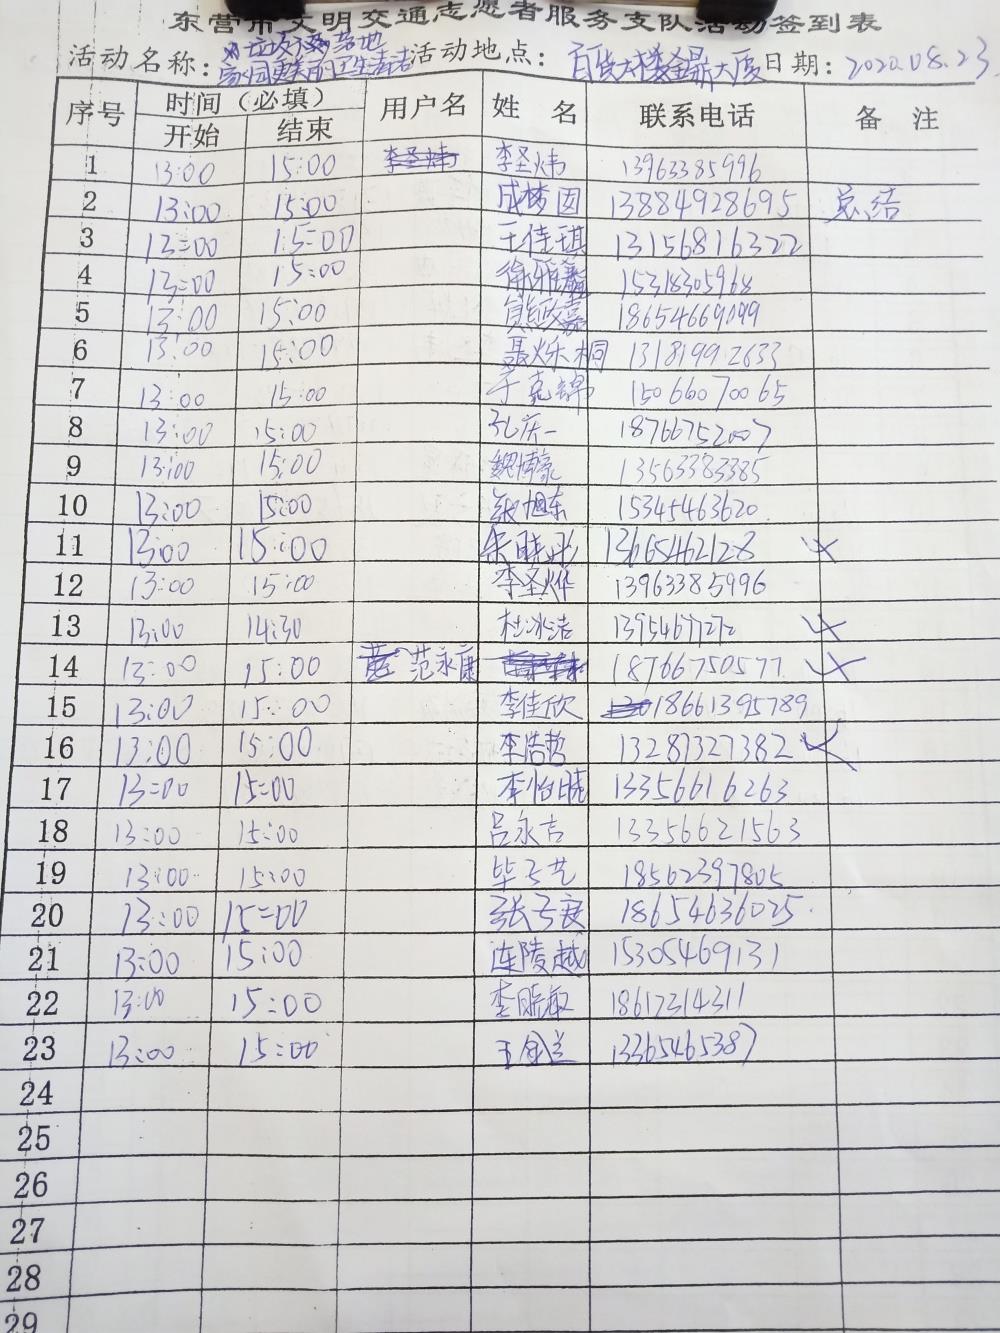 东营市文明交通志愿者服务支队活动签到表
活动名称: 小垃圾不落地 家园更美丽卫生清洁 活动地点: 百货大楼金鼎大厦 日期: 2020.08.23
序号 时间（必填） 用户名 姓 名 联系电话 备 注
开始 结束
1 13:00 15:00 李圣炜 13963385996
2 13:00 15:00 成梦圆 13884928695 总结
3 13:00 15:00 王佳琪 13156816322
4 13:00 15:00 徐雅馨 15318305968
5 13:00 15:00 熊政嘉 18654669099
6 13:00 15:00 聂烁桐 13181992633
7 13:00 15:00 于克锦 15066070065
8 13:00 15:00 孔庆一 18766752007
9 13:00 15:00 魏博豪 13563383385
10 13:00 15:00 张旭东 15345463620
11 13:00 15:00 朱晓彤 13665462128
12 13:00 15:00 李圣烨 13963385996
13 13:00 14:30 杜冰洁
14 13:00 15:00 范永康 18766750577
15 13:00 15:00 李佳欣 18661395789
16 13:00 15:00 李浩哲 13287327382
17 13:00 15:00 李怡晓 13356616263
18 13:00 15:00 吕永吉 13356621563
19 13:00 15:00 毕子艺 18562397805
20 13:00 15:00 张子宸 18654636025
21 13:00 15:00 连陵越 15305469131
22 13:00 15:00 李晓敏 18617314311
23 13:00 15:00 王金兰 13365465387
24
25
26
27
28
29